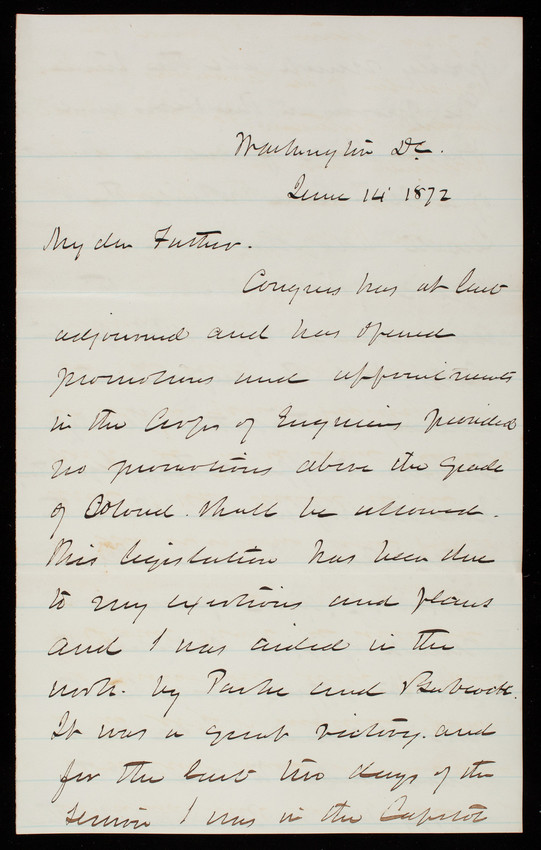 Washington DC.
June 14 1872
My dear Father.
Congress has at last
adjourned and has opened
promotions and appointments
in the Corps of Engineers provided
no promotions above the grade
of Colonel shall be allowed.
This legislation has been due
to my exertions and plans
and I was aided in the
work. by Parke and Babcock.
It was a great victory. and
for the last two days of the
session I was in the Capitol